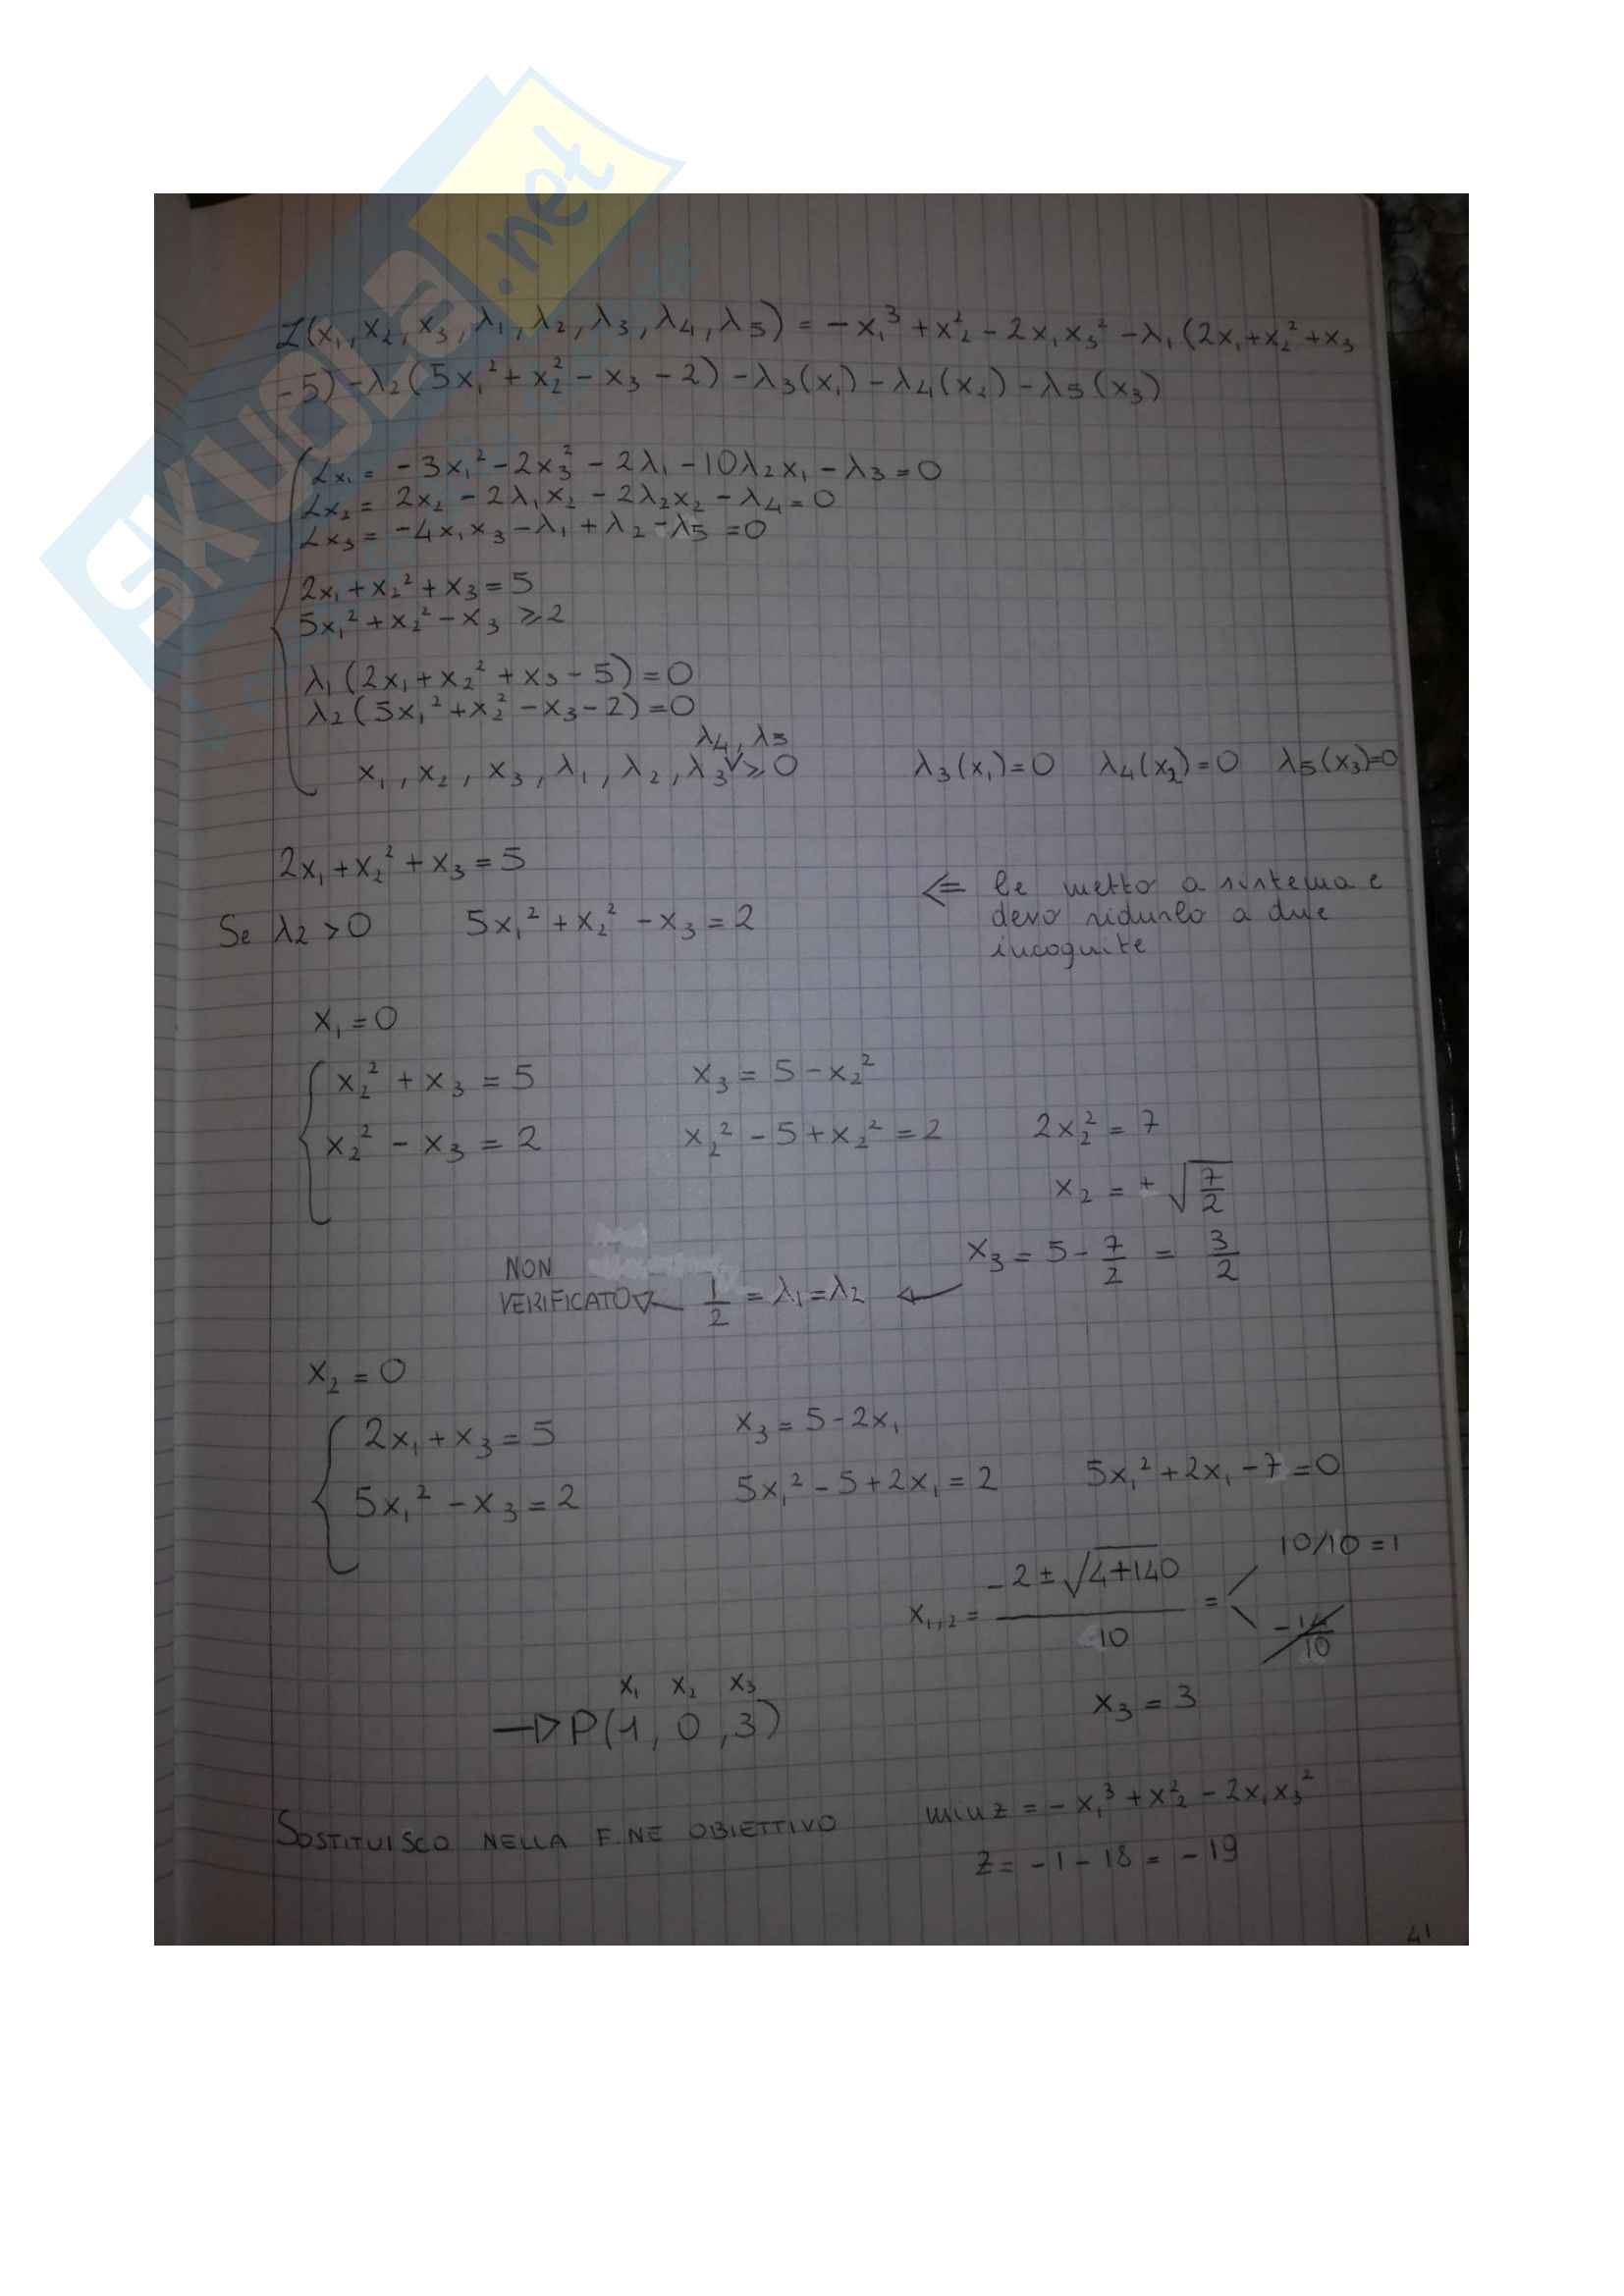 SKUOLA.net
L(x₁, x₂, x₃, λ₁, λ₂, λ₃, λ₄, λ₅) = -x₁³ + x₂² - 2x₁x₃² - λ₁(2x₁ + x₂² + x₃
-5) - λ₂(5x₁² + x₂² - x₃ - 2) - λ₃(x₁) - λ₄(x₂) - λ₅(x₃)
Lx₁ = -3x₁² - 2x₃² - 2λ₁ - 10λ₂x₁ - λ₃ = 0
Lx₂ = 2x₂ - 2λ₁x₂ - 2λ₂x₂ - λ₄ = 0
Lx₃ = -4x₁x₃ - λ₁ + λ₂ - λ₅ = 0
2x₁ + x₂² + x₃ = 5
5x₁² + x₂² - x₃ ≥ 2
λ₁(2x₁ + x₂² + x₃ - 5) = 0
λ₂(5x₁² + x₂² - x₃ - 2) = 0
λ₄, λ₅
x₁, x₂, x₃, λ₁, λ₂, λ₃ ∨ ≥ 0 λ₃(x₁) = 0 λ₄(x₂) = 0 λ₅(x₃) = 0
2x₁ + x₂² + x₃ = 5
⇐ le metto a sistema e
Se λ₂ > 0 5x₁² + x₂² - x₃ = 2 devo ridurlo a due
incognite
x₁ = 0
x₂² + x₃ = 5 x₃ = 5 - x₂²
x₂² - x₃ = 2 x₂² - 5 + x₂² = 2 2x₂² = 7
x₂ = ± √7/2
x₃ = 5 - 7/2 = 3/2
NON
VERIFICATO 1/2 = λ₁ = λ₂ ←
x₂ = 0
2x₁ + x₃ = 5 x₃ = 5 - 2x₁
5x₁² - x₃ = 2 5x₁² - 5 + 2x₁ = 2 5x₁² + 2x₁ - 7 = 0
10/10 = 1
x₁,₂ = -2 ± √4+140 / 10 = -14/10
x₁ x₂ x₃
→ P(1, 0, 3) x₃ = 3
SOSTITUISCO NELLA F.NE OBIETTIVO min z = -x₁³ + x₂² - 2x₁x₃²
z = -1 - 18 = -19
41